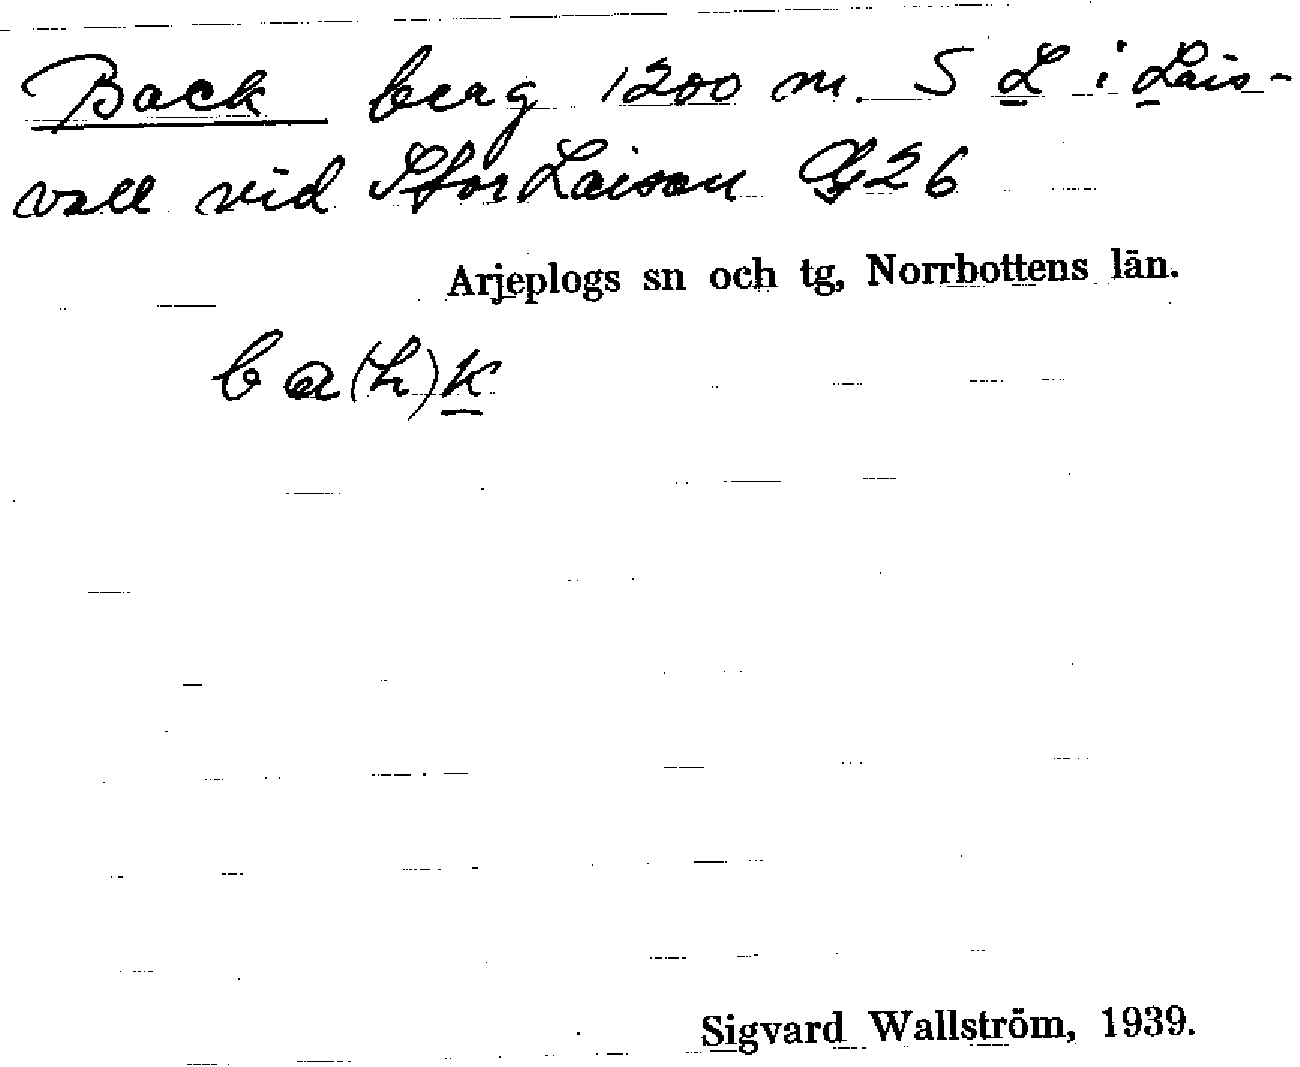 Back berg 1200 m. S L i Lais-
vall vid Stor Laisan G26
Arjeplogs sn och tg, Norrbottens län.
ba(h)k
Sigvard Wallström, 1939.